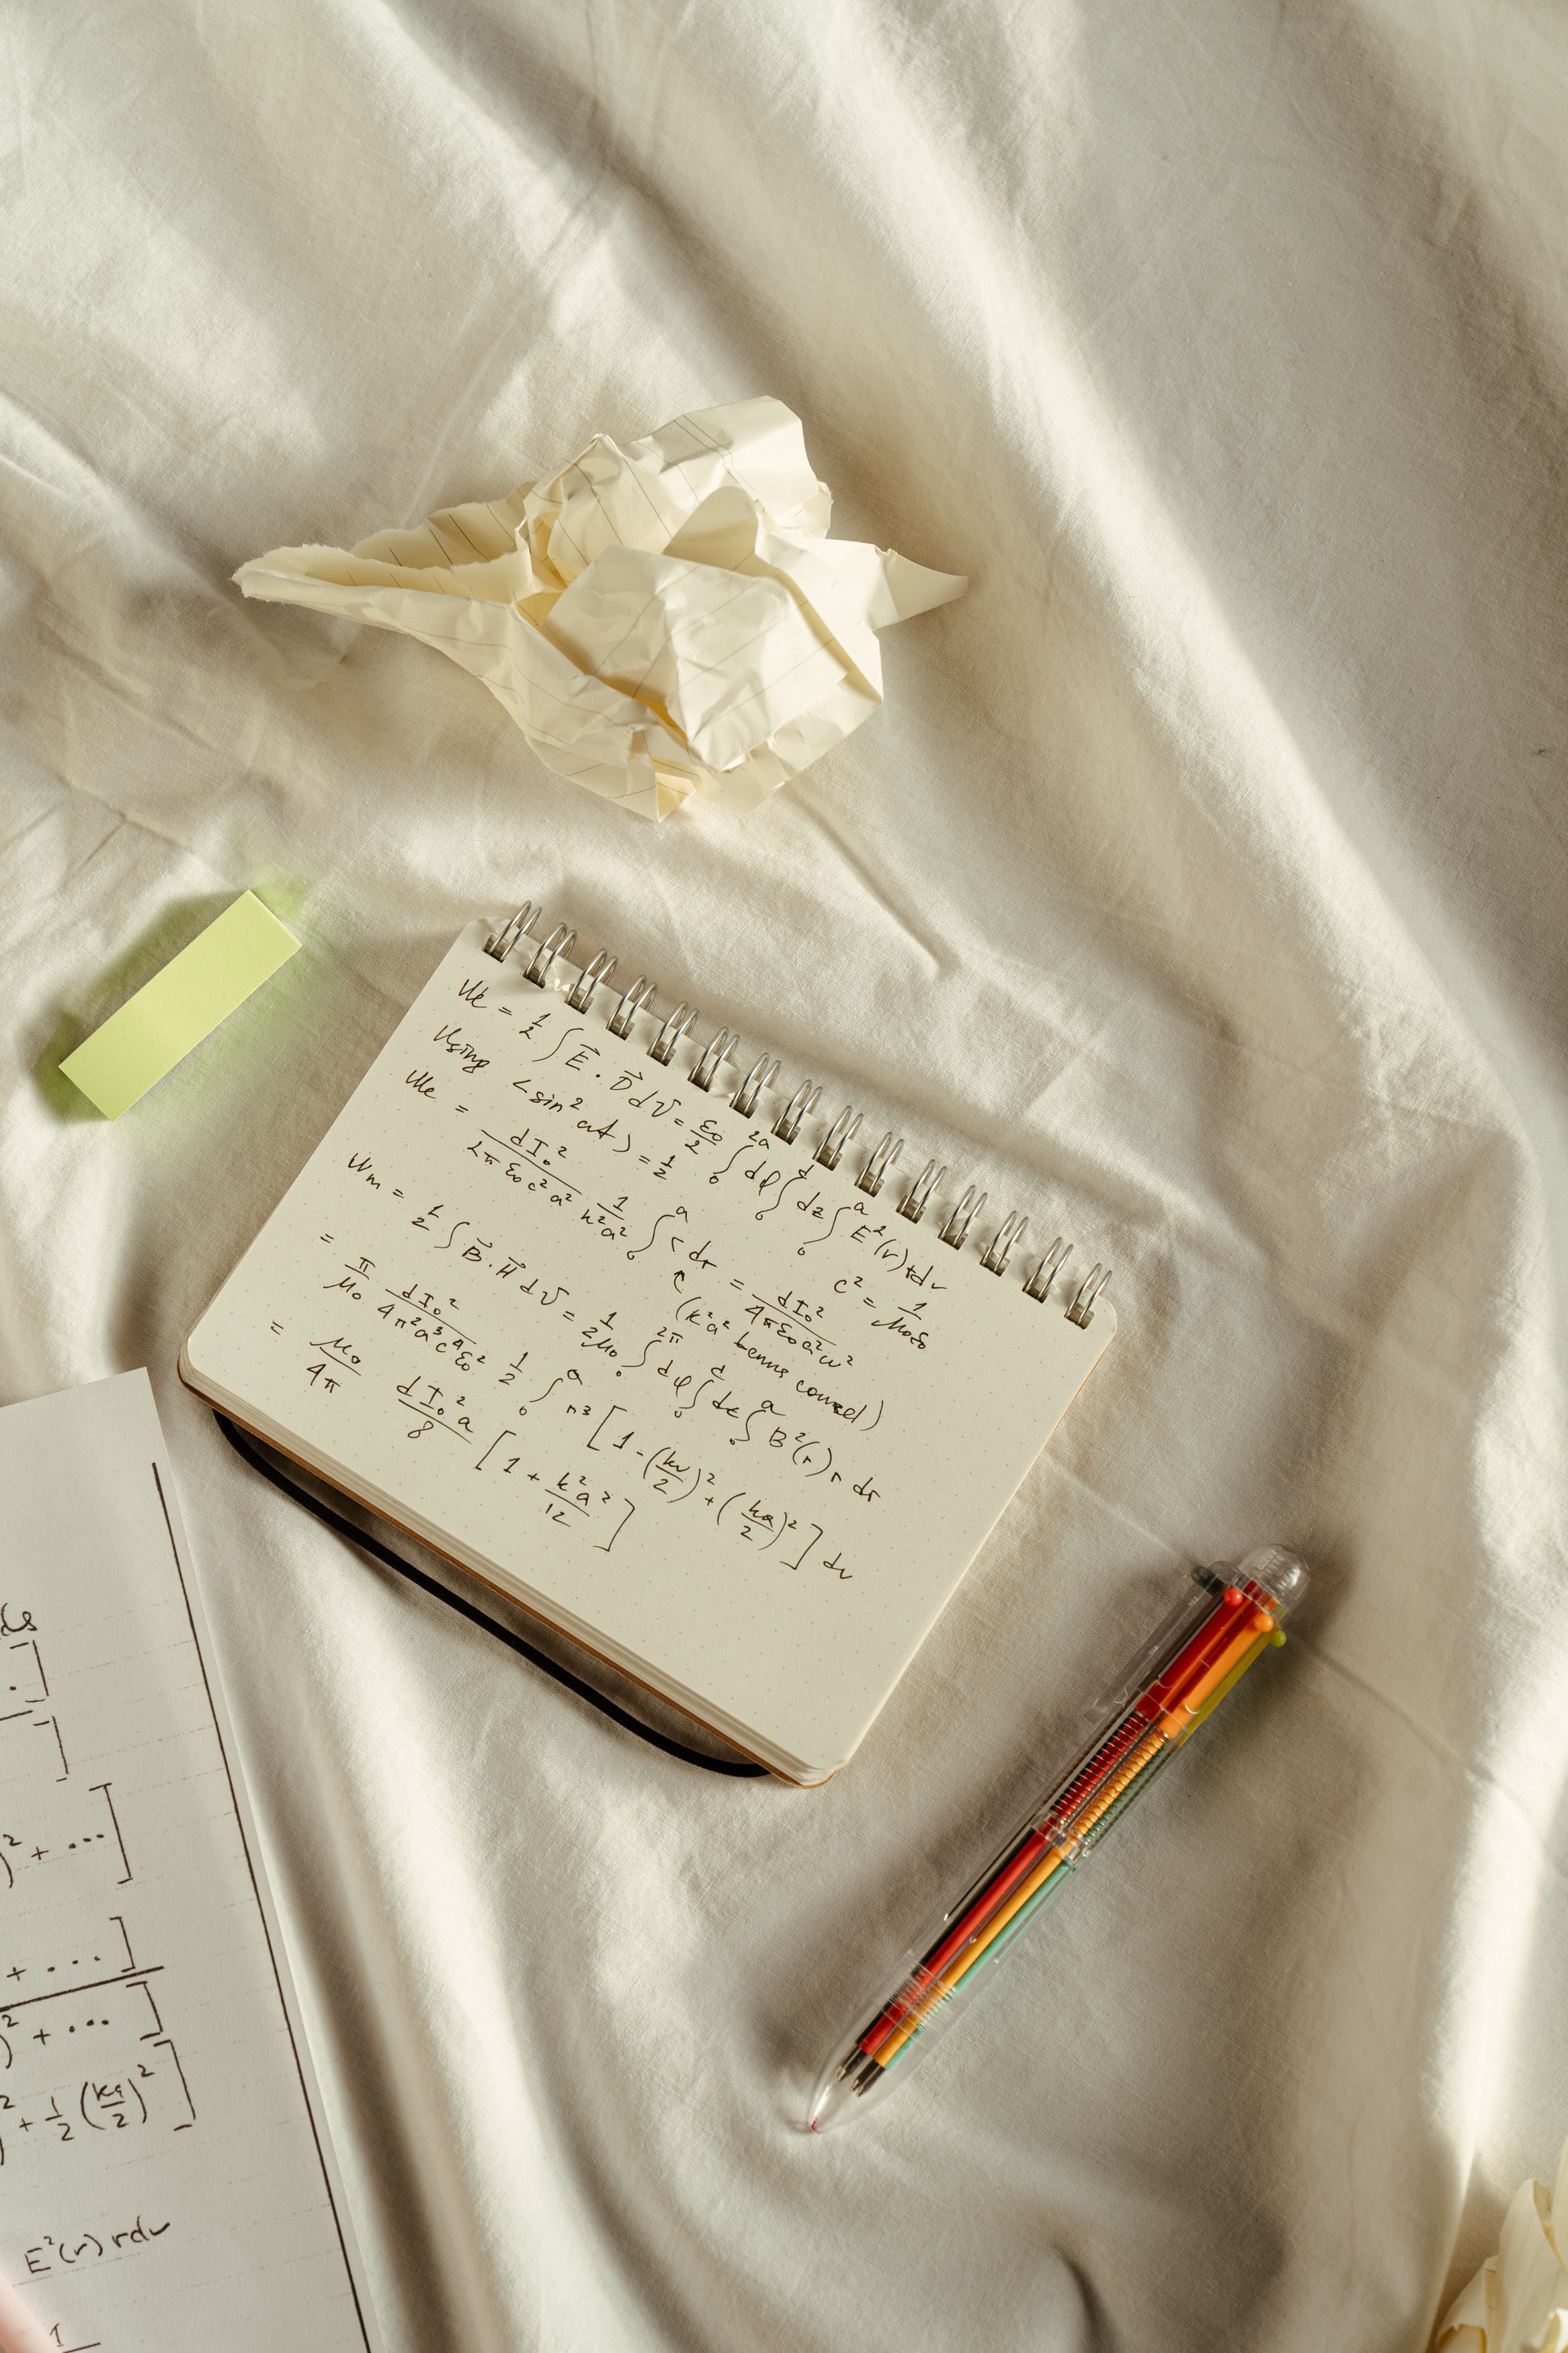 We = 1/2 ∫ E⃗ · D⃗ dV = ε₀/2 ∫₀^2a dφ ∫₀^d dz ∫₀^a E²(r) r dr
Using <sin² ωt> = 1/2 c² = 1/μ₀ε₀
We = dI₀²/2πε₀c²a² 1/k²a² ∫₀^a r dr = dI₀²/4πε₀a²ω²
(k²a² terms cancel)
Wm = 1/2 ∫ B⃗ · H⃗ dV = 1/2μ₀ ∫₀^2π dφ ∫₀^d dz ∫₀^a B²(r) r dr
= π/μ₀ dI₀²/4π²a³c⁴ε₀² 1/2 ∫₀^a r³ [1 - (kr/2)² + (ka/2)²] dr
= μ₀/4π dI₀²a/8 [1 + k²a²/12]
)² + ...]
+ ...]
)² + ...]
² + 1/2 (ka/2)²]
E²(r) r dr
1